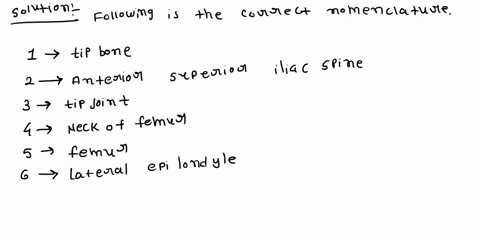 Solution:- Following is the correct nomenclature.
1 → tip bone
2 → Anterior superior iliac spine
3 → tip joint
4 → Neck of femur
5 → femur
6 → Lateral epi londyle